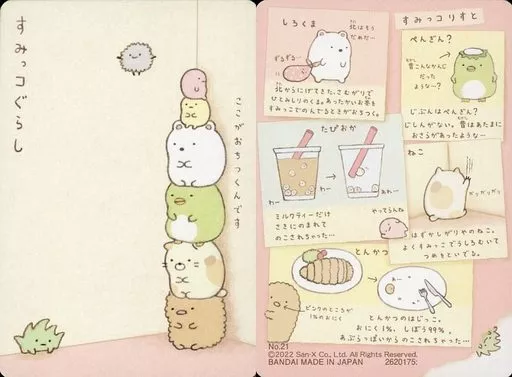 すみっコぐらし
ここがおちつくんです
しろくま
北はもう
だめだ…
ずるずる…
北からにげてきた、さむがりで
ひとみしりのくま。あったかいお茶を
すみっこでのんでるときがおちつく。
すみっコリすと
ぺんぎん？
昔こんなかんじ
だった
ような…？
じぶんはぺんぎん？
じしんがない。昔はあたまに
おさらがあったような…
たぴおか
わー
わー
ミルクティーだけ
さきにのまれて
のこされちゃった…
やってらんね
ねこ
ガリガリガリ
はずかしがりやのねこ。
よくすみっこでうしろむいて
つめをといでる。
とんかつ
ピンクのところが
1%のおにく
とんかつのはじっこ。
おにく1%、しぼう99%。
あぶらっぽいからのこされちゃった…
No.21
©2022 San-X Co., Ltd. All Rights Reserved.
BANDAI MADE IN JAPAN 2620175: